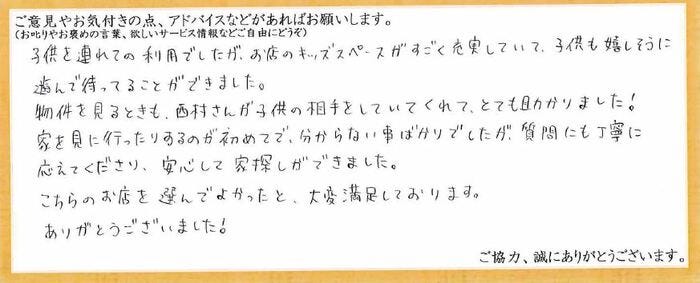 ご意見やお気付きの点、アドバイスなどがあればお願いします。
(お叱りやお褒めの言葉、欲しいサービス情報などご自由にどうぞ)
子供を連れての利用でしたが、お店のキッズスペースがすごく充実していて、子供も嬉しそうに
遊んで待ってることができました。
物件を見るときも、西村さんが子供の相手をしていてくれて、とても助かりました!
家を見に行ったりするのが初めてで、分からない事ばかりでしたが、質問にも丁寧に
応えてくださり、安心して家探しができました。
こちらのお店を選んでよかったと、大変満足しております。
ありがとうございました!
ご協力、誠にありがとうございます。